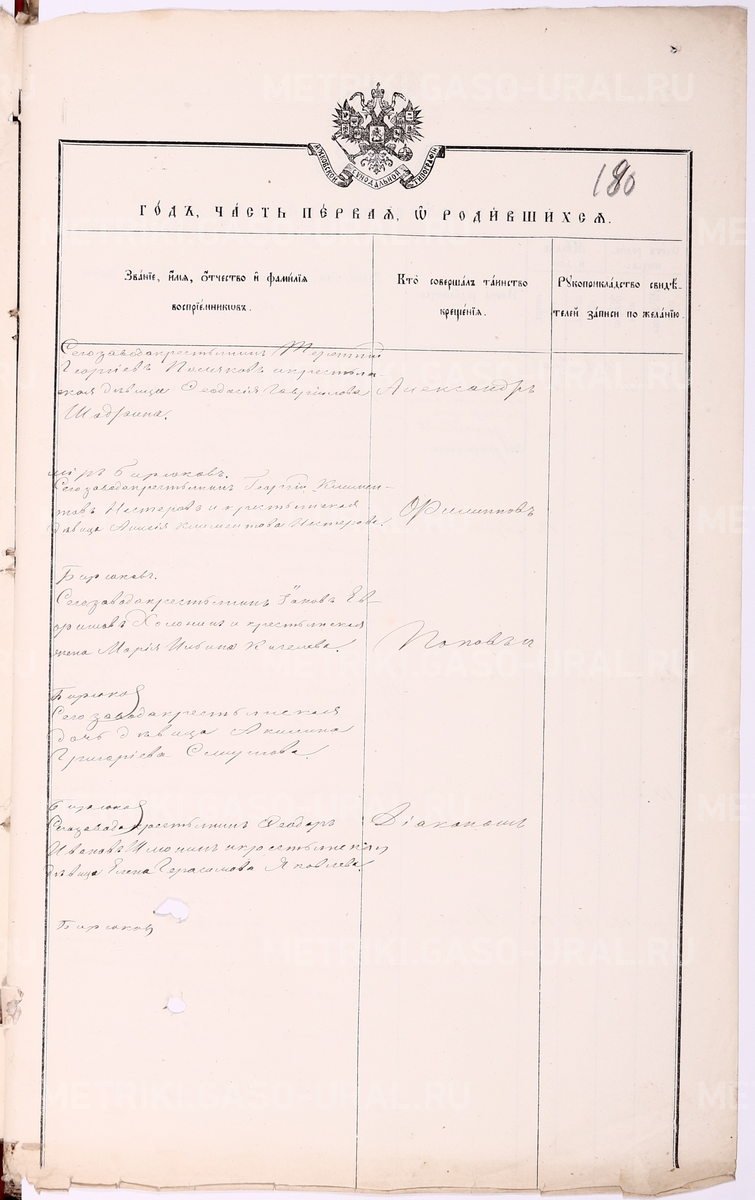 METRIKI.GASO-URAL.RU
МОСКОВСКОЙ СИНОДАЛЬНОЙ ТИПОГРАФІИ
180
ГО́ДЪ, ЧА́СТЬ ПЕ́РВАЯ, Ѽ РОДИ́ВШИХСЯ.
Зва́нїе, и́мѧ, ѻ҆́тчество и҆ фамѝлїѧ
воспрїе́мниковъ.
Кто̀ соверша́лъ та́инство
креще́нїѧ.
Рꙋкоприкла́дство свидѣ́-
телей за́писи по жела́нїю.
Сегозаводакрестьянинъ Терентій
Георгіевъ и крестьян-
ская дѣвица Ѳеодосія Гавріилова
Шадрина.
Александръ
Бирюковъ.
Сегозаводакрестьянинъ Георгій Климен-
товъ Нестеровъ и крестьянская
дѣвица Климентова Нестерова.
Филипповъ
Бирюковъ.
Сегозаводакрестьянинъ Іаковъ Ев-
и крестьянская
жена Марія Ильина
Поповъ
Бирюковъ
Сегозаводакрестьянская
дочь дѣвица Акилина
Григоріева
Бирюковъ
Сегозаводакрестьянинъ Ѳеодоръ
Ивановъ и крестьянская
дѣвица Елена Герасимова Яковлева.
Діакономъ
Бирюковъ